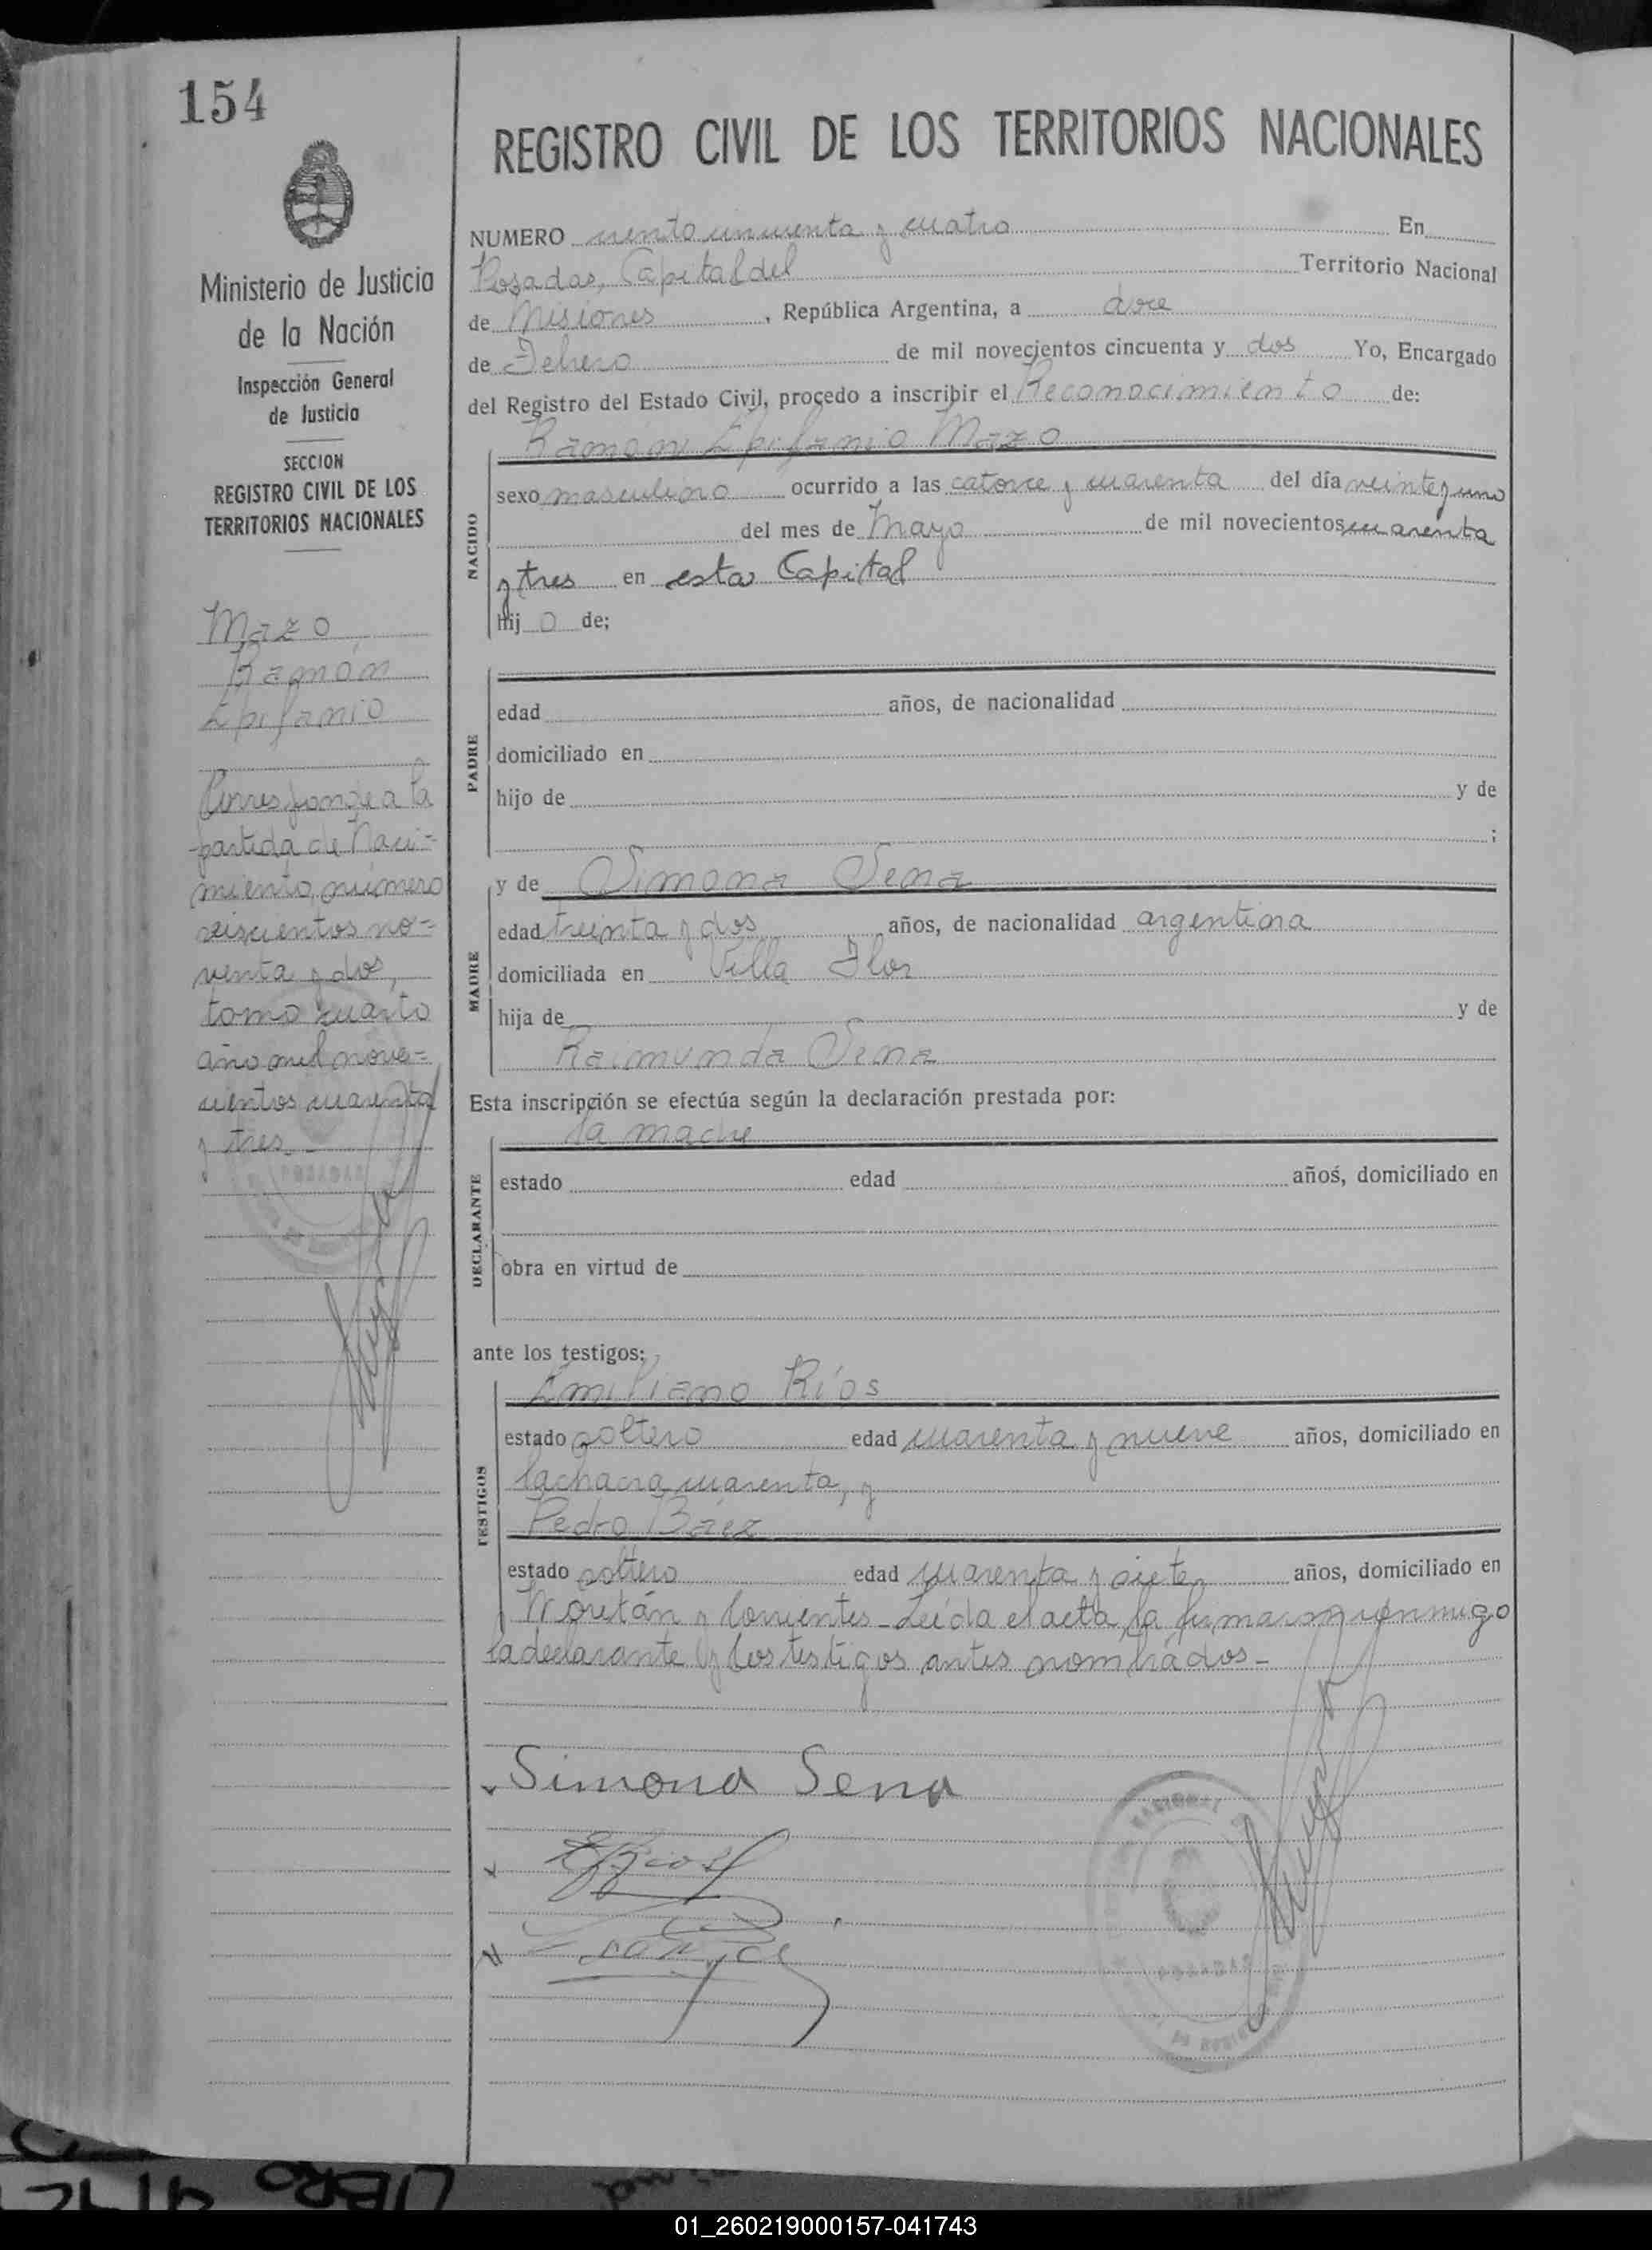 154
Ministerio de Justicia
de la Nación
Inspección General
de Justicia
SECCION
REGISTRO CIVIL DE LOS
TERRITORIOS NACIONALES
Mazo
Ramón
Epifanio
Corresponde a la
partida de Naci-
miento, número
seiscientos no-
venta y dos,
tomo cuarto
año mil nove-
cientos cuarenta
y tres.-
REGISTRO CIVIL DE LOS TERRITORIOS NACIONALES
NUMERO ciento cincuenta y cuatro En
Posadas, Capital del Territorio Nacional
de Misiones, República Argentina, a doce
de Febrero de mil novecientos cincuenta y dos Yo, Encargado
del Registro del Estado Civil, procedo a inscribir el Reconocimiento de:
Ramón Epifanio Mazo
NACIDO
sexo masculino ocurrido a las catorce y cuarenta del día veinte y uno
del mes de Mayo de mil novecientos cuarenta
y tres en esta Capital
hij o de;
PADRE
edad años, de nacionalidad
domiciliado en
hijo de y de
;
MADRE
y de Simona Sena
edad treinta y dos años, de nacionalidad argentina
domiciliada en Villa Flor
hija de y de
Raimunda Sena
Esta inscripción se efectúa según la declaración prestada por:
la madre
DECLARANTE
estado edad años, domiciliado en
obra en virtud de
ante los testigos:
TESTIGOS
Emiliano Ríos
estado soltero edad cuarenta y nueve años, domiciliado en
la chacra cuarenta, y
Pedro Báez
estado soltero edad cuarenta y siete años, domiciliado en
y Corrientes - Leída el acta, la firmaron conmigo
la declarante y los testigos antes nombrados -
Simona Sena
E Rios
POSADAS
LIBRO
01_260219000157-041743